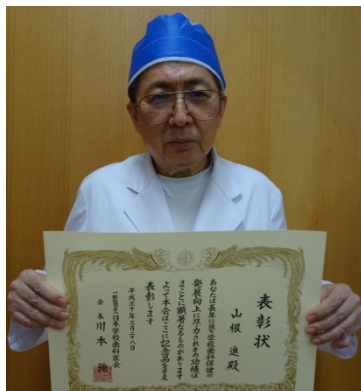 表彰状
山根 進 殿
あなたは長年に亘り学校歯科保健の
発展向上に尽力されその功績は
まことに顕著なるものがあります
よって本会はここに記念品をそえ
表彰します
平成三十年三月二十八日
一般社団法人日本学校歯科医会
会長 川本 強